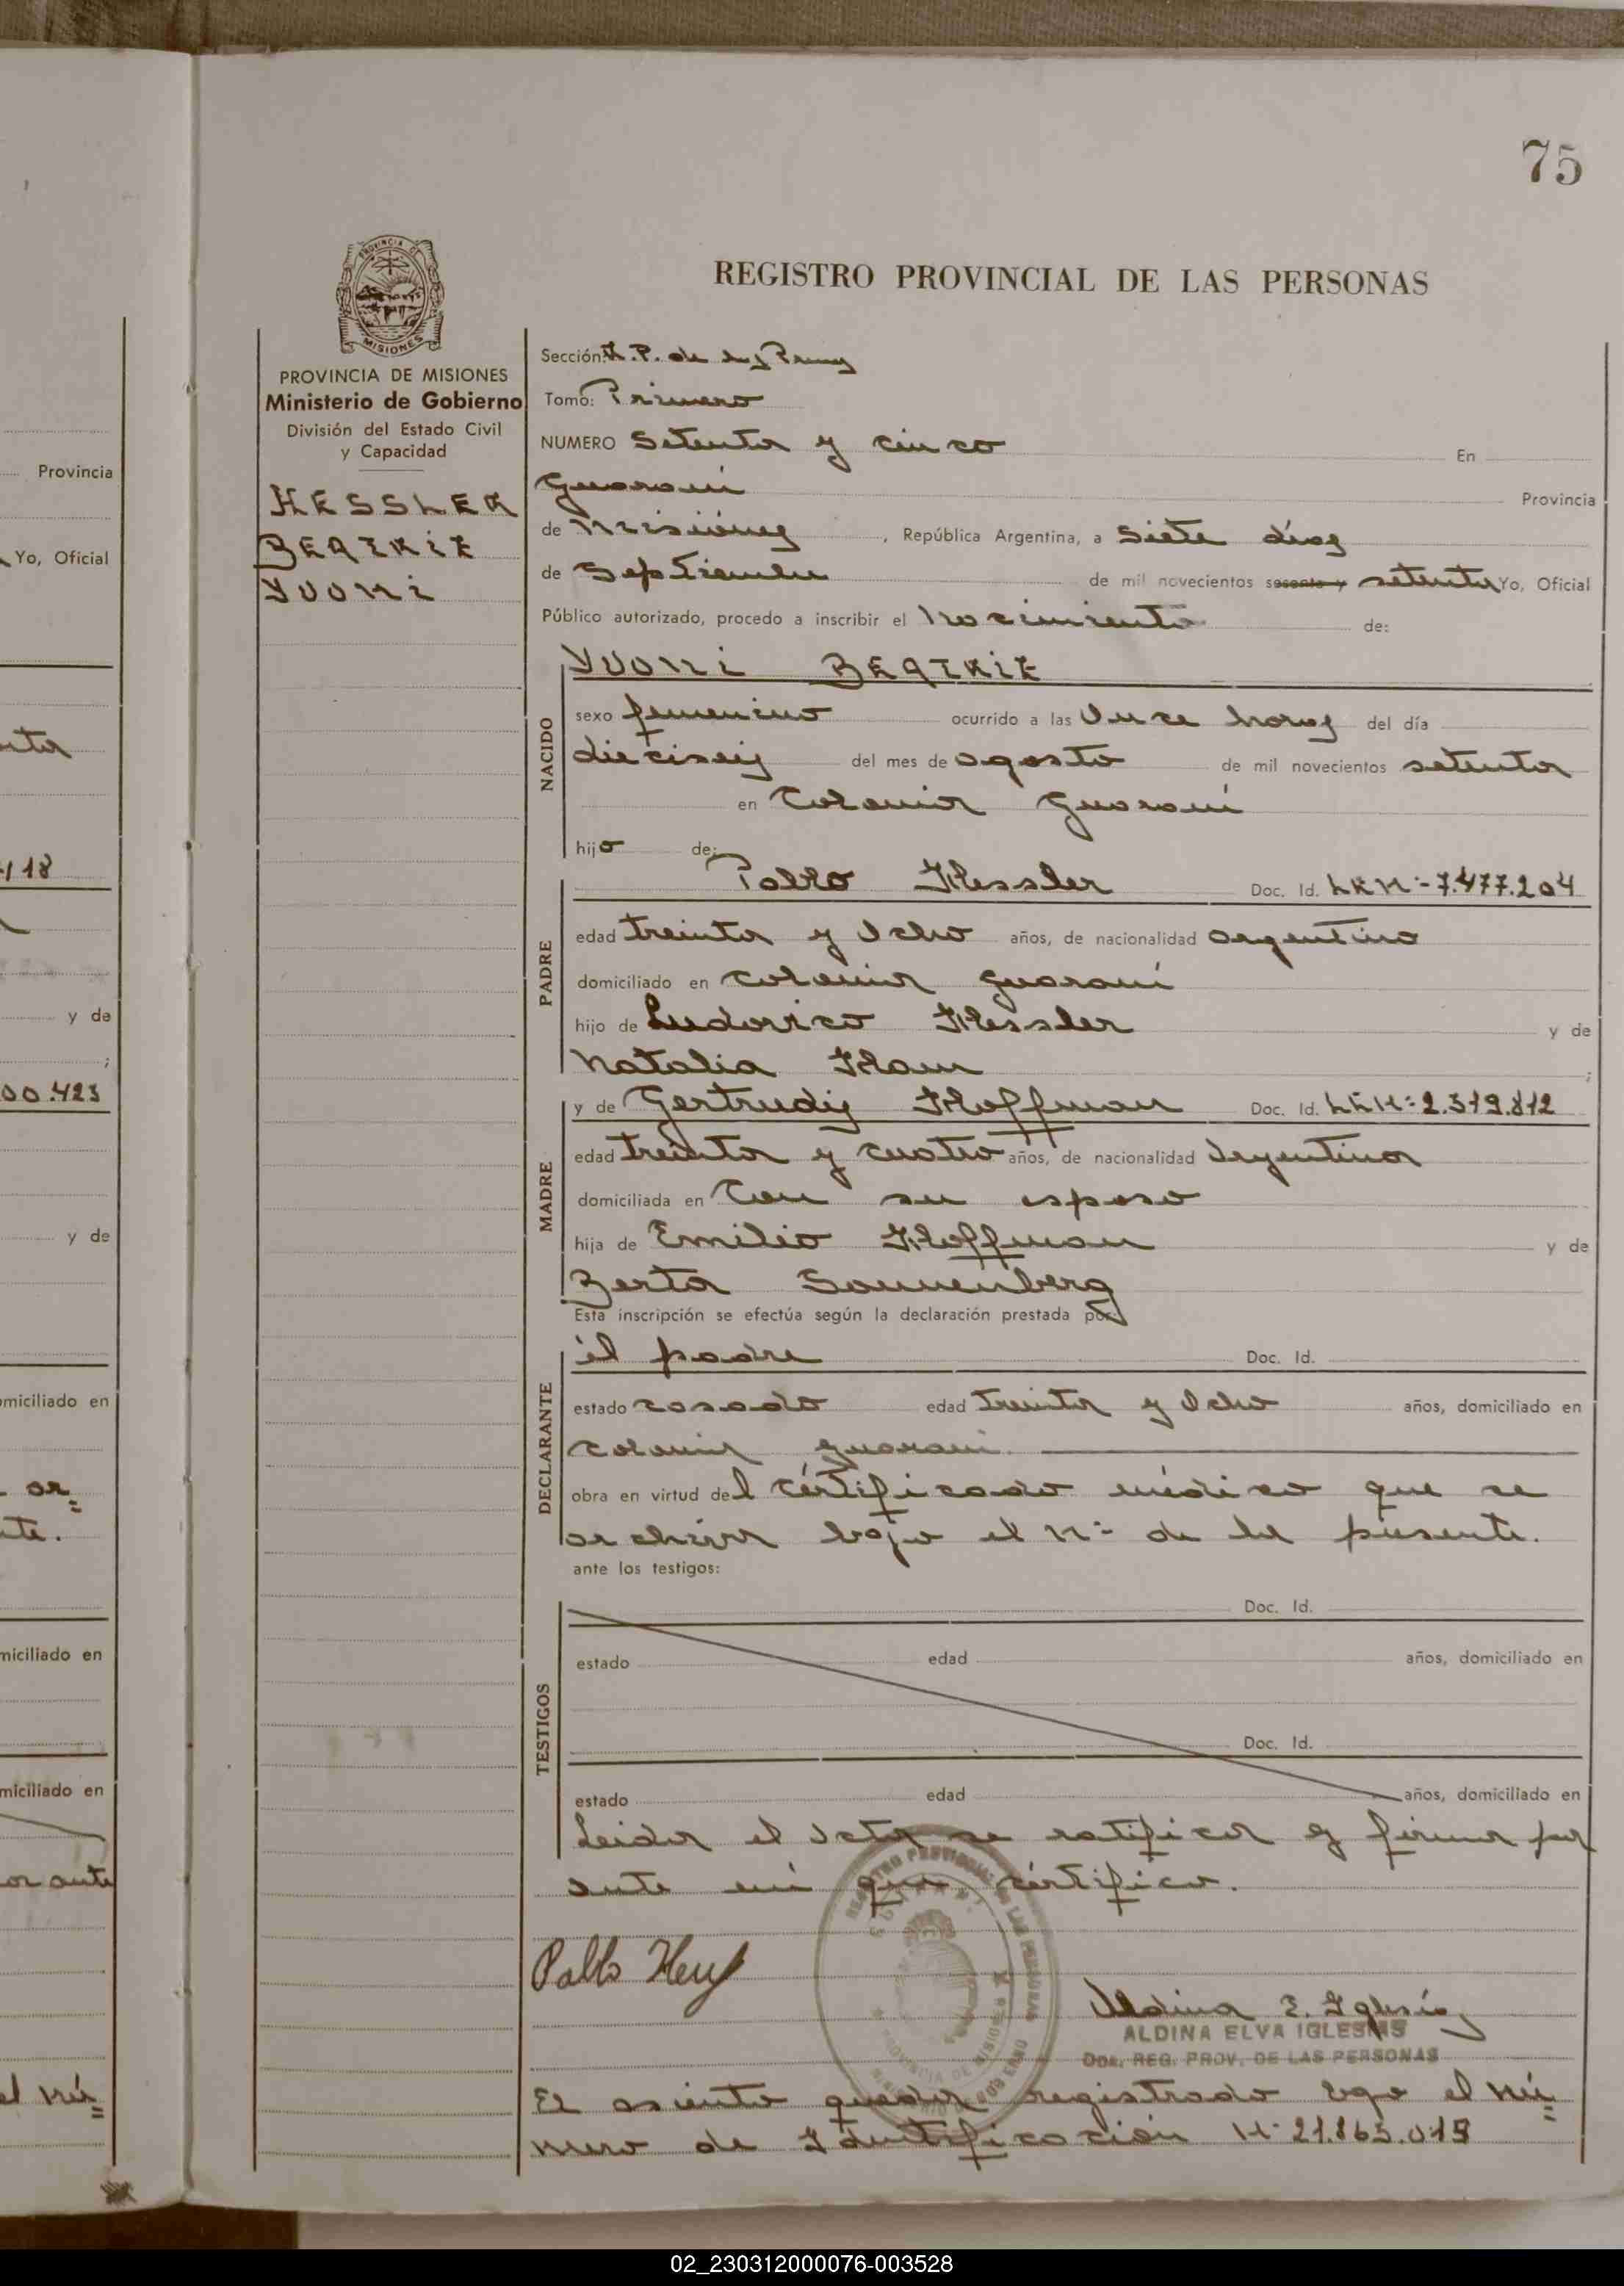 75
PROVINCIA DE MISIONES
REGISTRO PROVINCIAL DE LAS PERSONAS
PROVINCIA DE MISIONES
Ministerio de Gobierno
División del Estado Civil
y Capacidad
HESSLER
BEATRIZ
YVONI
Sección: R.P. de las
Tomo: Primero
NUMERO Setenta y cinco En
Guaraní Provincia
de Misiones, República Argentina, a siete días
de Septiembre de mil novecientos sesenta y setenta Yo, Oficial
Público autorizado, procedo a inscribir el Nacimiento de:
YVONI BEATRIZ
NACIDO
sexo femenino ocurrido a las Once horas del día
dieciseis del mes de agosto de mil novecientos setenta
en Colonia Guaraní
hijo de:
PADRE
Pablo Hessler Doc. Id. L.E.N:- 7.477.204
edad treinta y Ocho años, de nacionalidad argentino
domiciliado en Colonia Guaraní
hijo de Ludovico Hessler y de
Natalia Ham ;
MADRE
y de Gertrudis Hoffman Doc. Id.
edad treinta y cuatro años, de nacionalidad Argentina
domiciliada en Con su esposo
hija de Emilio Hoffman y de
Berta Sonnenberg
Esta inscripción se efectúa según la declaración prestada por:
DECLARANTE
el padre Doc. Id.
estado casado edad treinta y Ocho años, domiciliado en
colonia guaraní
obra en virtud del certificado médico que se
archiva bajo el N:- de la presente.
ante los testigos:
TESTIGOS
Doc. Id.
estado edad años, domiciliado en
Doc. Id.
estado edad años, domiciliado en
Leida el Acta se ratifica y firma por
ante mi que certifico.
Pablo
Aldina E. Iglesias
ALDINA ELVA IGLESIAS
REG. PROV. DE LAS PERSONAS
El asiento queda registrado bajo el nú=
mero de Identificación N:- 21.865.019
Provincia
Yo, Oficial
118
y de
;
00.423
y de
domiciliado en
ar=
te.
domiciliado en
domiciliado en
or ante
el nú=
02_230312000076-003528